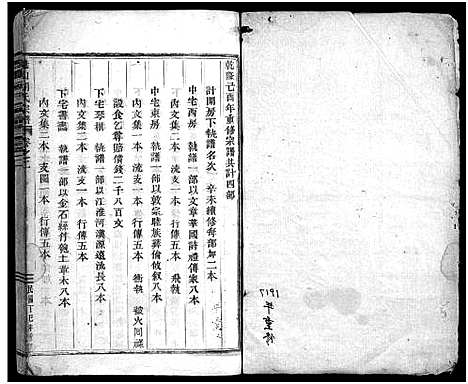 乾隆己酉年重修宗譜共計四部
計開房下執譜名次 辛未續修每部加二本
中宅東房 執譜一部以文章華國詩禮傳家八本
內文集二本 流支一本 行傳五本 飛執
中宅西房 執譜一部以敦宗睦族彝倫攸敘八本
內文集二本 流支一本 行傳五本 衝執 被火同祿
設食乞尋賠償錢二千八百文
下宅琴樹 執譜一部以江淮河漢源遠流長八本
內文集二本 流支一本 行傳五本
下宅書 執譜一部以金石絲竹匏土革木八本
內文集二本 支圖一本 行傳五本
1917
年重修